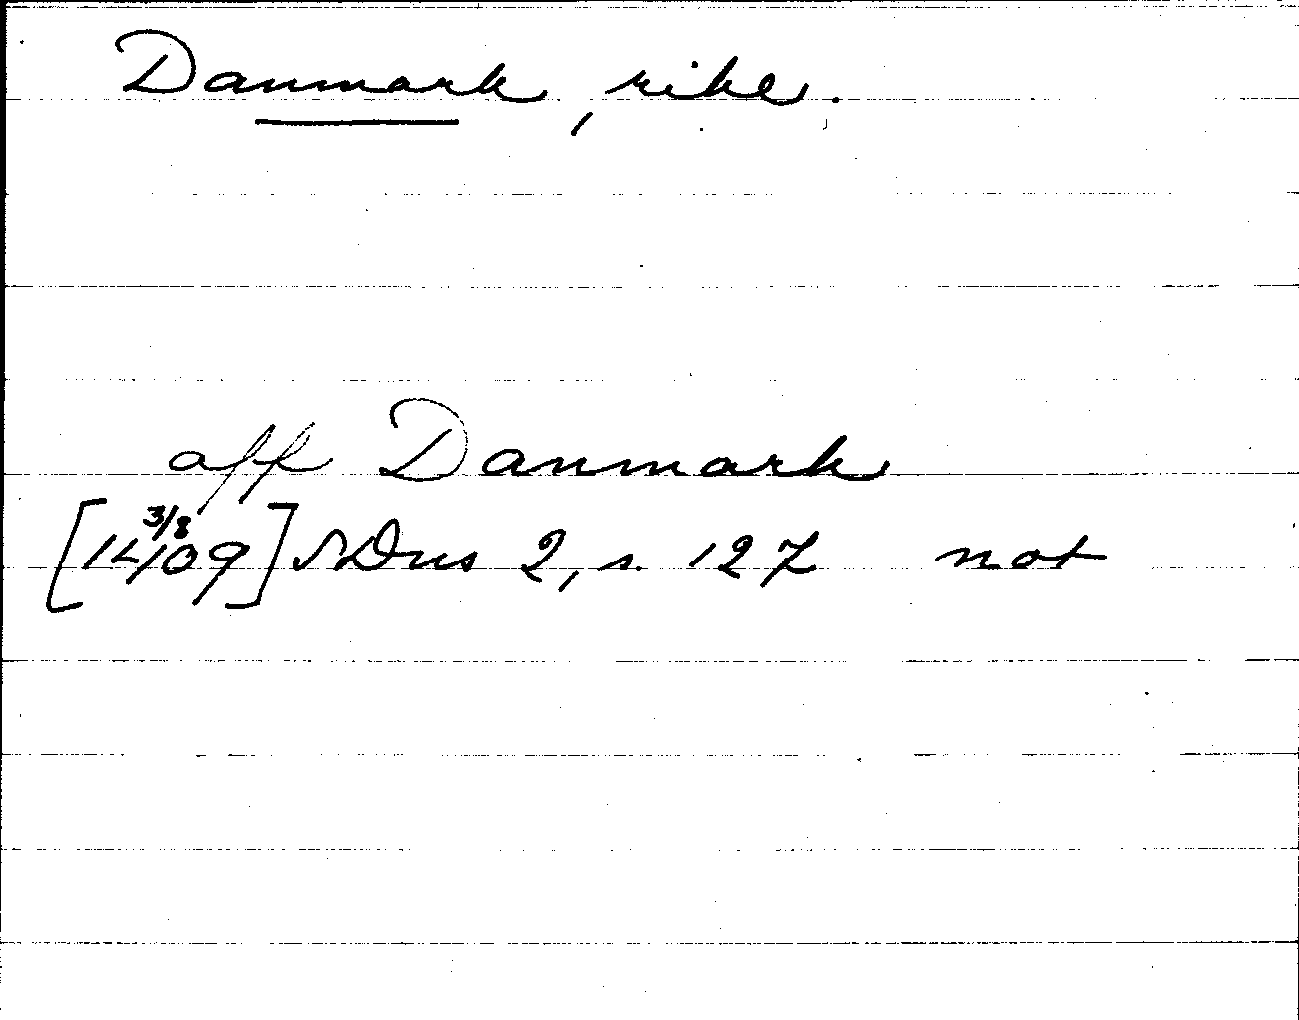 Danmark, rike.
aff Danmark
[1409 3/8] SDns 2, s. 127 not